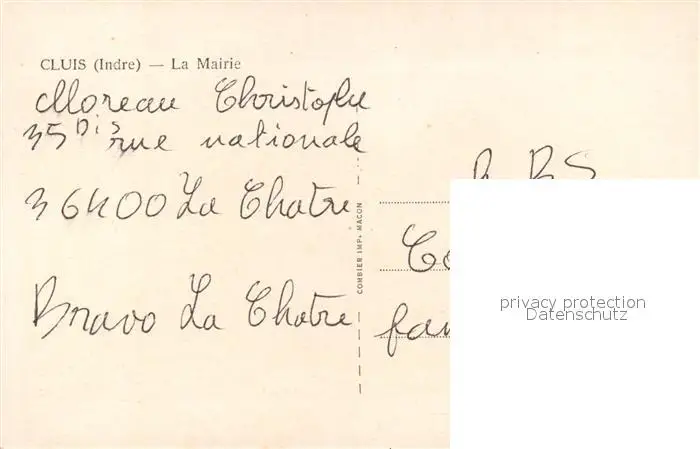 CLUIS (Indre) — La Mairie
Moreau Christophe
35 bis rue nationale
36400 La Chatre
Bravo La Chatre
COMBIER IMP. MACON
privacy protection
Datenschutz